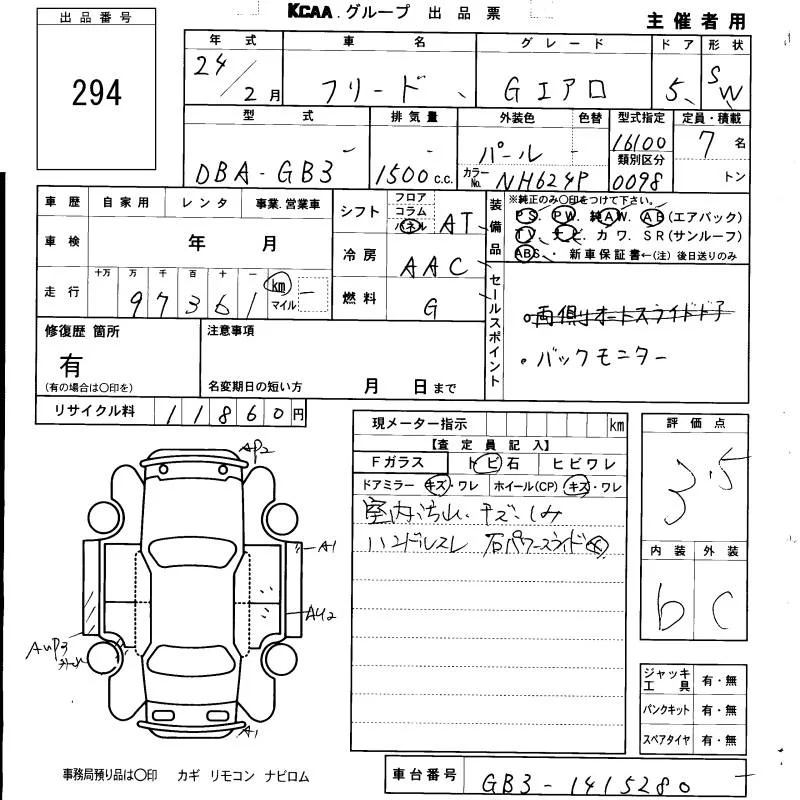 KCAA グループ 出品票
主催者用
出品番号
294
年式 車名 グレード ドア 形状
24/2月 フリード Gエアロ 5 SW
型式 排気量 外装色 色替 型式指定 定員・積載
DBA-GB3 1500c.c. パール 16100 7名
カラーNo. NH624P 類別区分 0098 トン
車歴 自家用 レンタ 事業.営業車
車検 年 月
走行 十万 万 千 百 十 一
97361 km マイル
シフト フロア コラム パネル AT
冷房 AAC
燃料 G
装備品
※純正のみ○印をつけて下さい。
PS. PW. 純AW. AB(エアバック)
TV. ナビ. カワ. SR(サンルーフ)
ABS. ・ 新車保証書←(注)後日送りのみ
セールスポイント
・両側オートスライドドア
・バックモニター
修復歴 箇所
有
(有の場合は○印を)
注意事項
名変期日の短い方 月 日まで
リサイクル料 11860円
現メーター指示 km
【査定員記入】
Fガラス トビ石 ヒビワレ
ドアミラー キズ・ワレ ホイール(CP) キズ・ワレ
室内汚れ・キズ・しみ
ハンドルスレ 右パワースライド
評価点
3.5
内装 外装
b C
AP2
A1
AU2
AUP3
A1
ジャッキ工具 有・無
パンクキット 有・無
スペアタイヤ 有・無
事務局預り品は○印 カギ リモコン ナビロム
車台番号 GB3-1415280